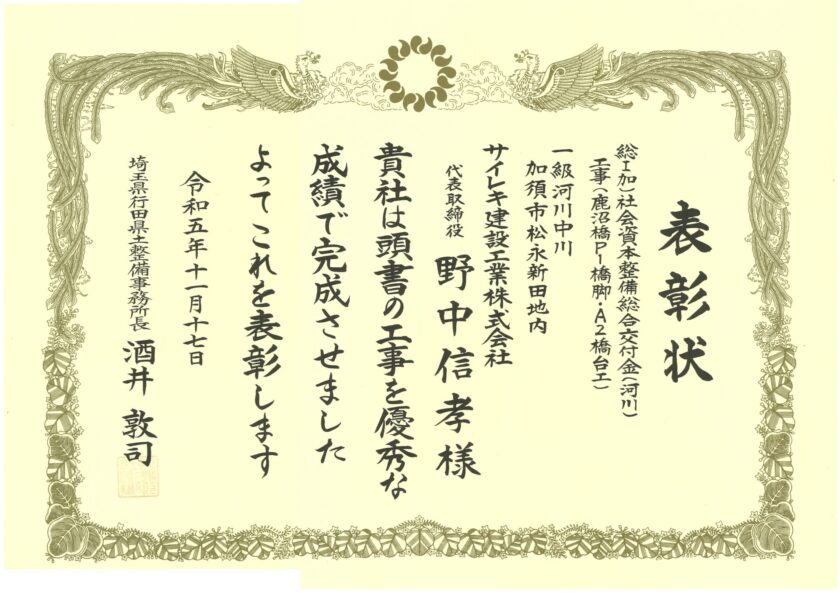 表彰状
総Ⅰ加)社会資本整備総合交付金(河川)
工事(鹿沼橋P1橋脚・A2橋台工)
一級河川中川
加須市松永新田地内
サイレキ建設工業株式会社
代表取締役 野中信孝様
貴社は頭書の工事を優秀な
成績で完成させました
よってこれを表彰します
令和五年十一月十七日
埼玉県行田県土整備事務所長 酒井敦司